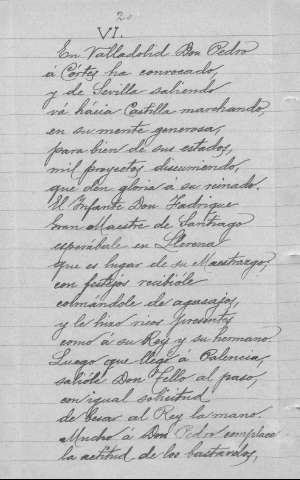 20
VI.
En Valladolid Don Pedro
á Córtes ha convocado,
y de Sevilla saliendo
vá hácia Castilla marchando,
en su mente generosa,
para bien de sus estados,
mil proyectos discurriendo,
que den gloria a su reinado.
El Infante Don Fadrique
Gran Maestre de Santiago
esperábale en Llerena
que es lugar de su Maestrazgo;
con festejos recibióle
colmándole de agasajos,
y le hizo ricos presentes
como á su Rey y su hermano.
Luego que llegó á Palencia,
salióle Don Tello al paso,
con igual solicitud
de besar al Rey la mano.
Mucho á Don Pedro complace
la actitud de los bastardos,